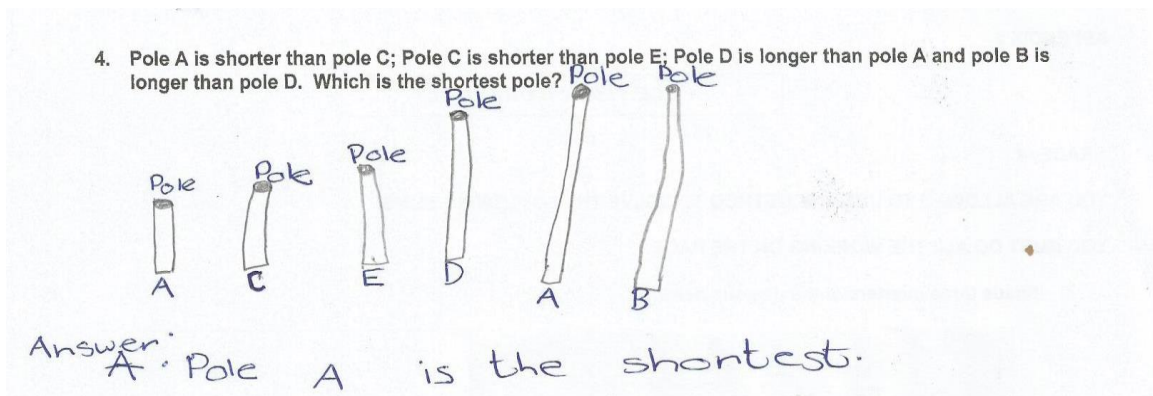 4. Pole A is shorter than pole C; Pole C is shorter than pole E; Pole D is longer than pole A and pole B is
longer than pole D. Which is the shortest pole?
Pole Pole Pole Pole Pole Pole
A C E D A B
Answer:
A. Pole A is the shortest.